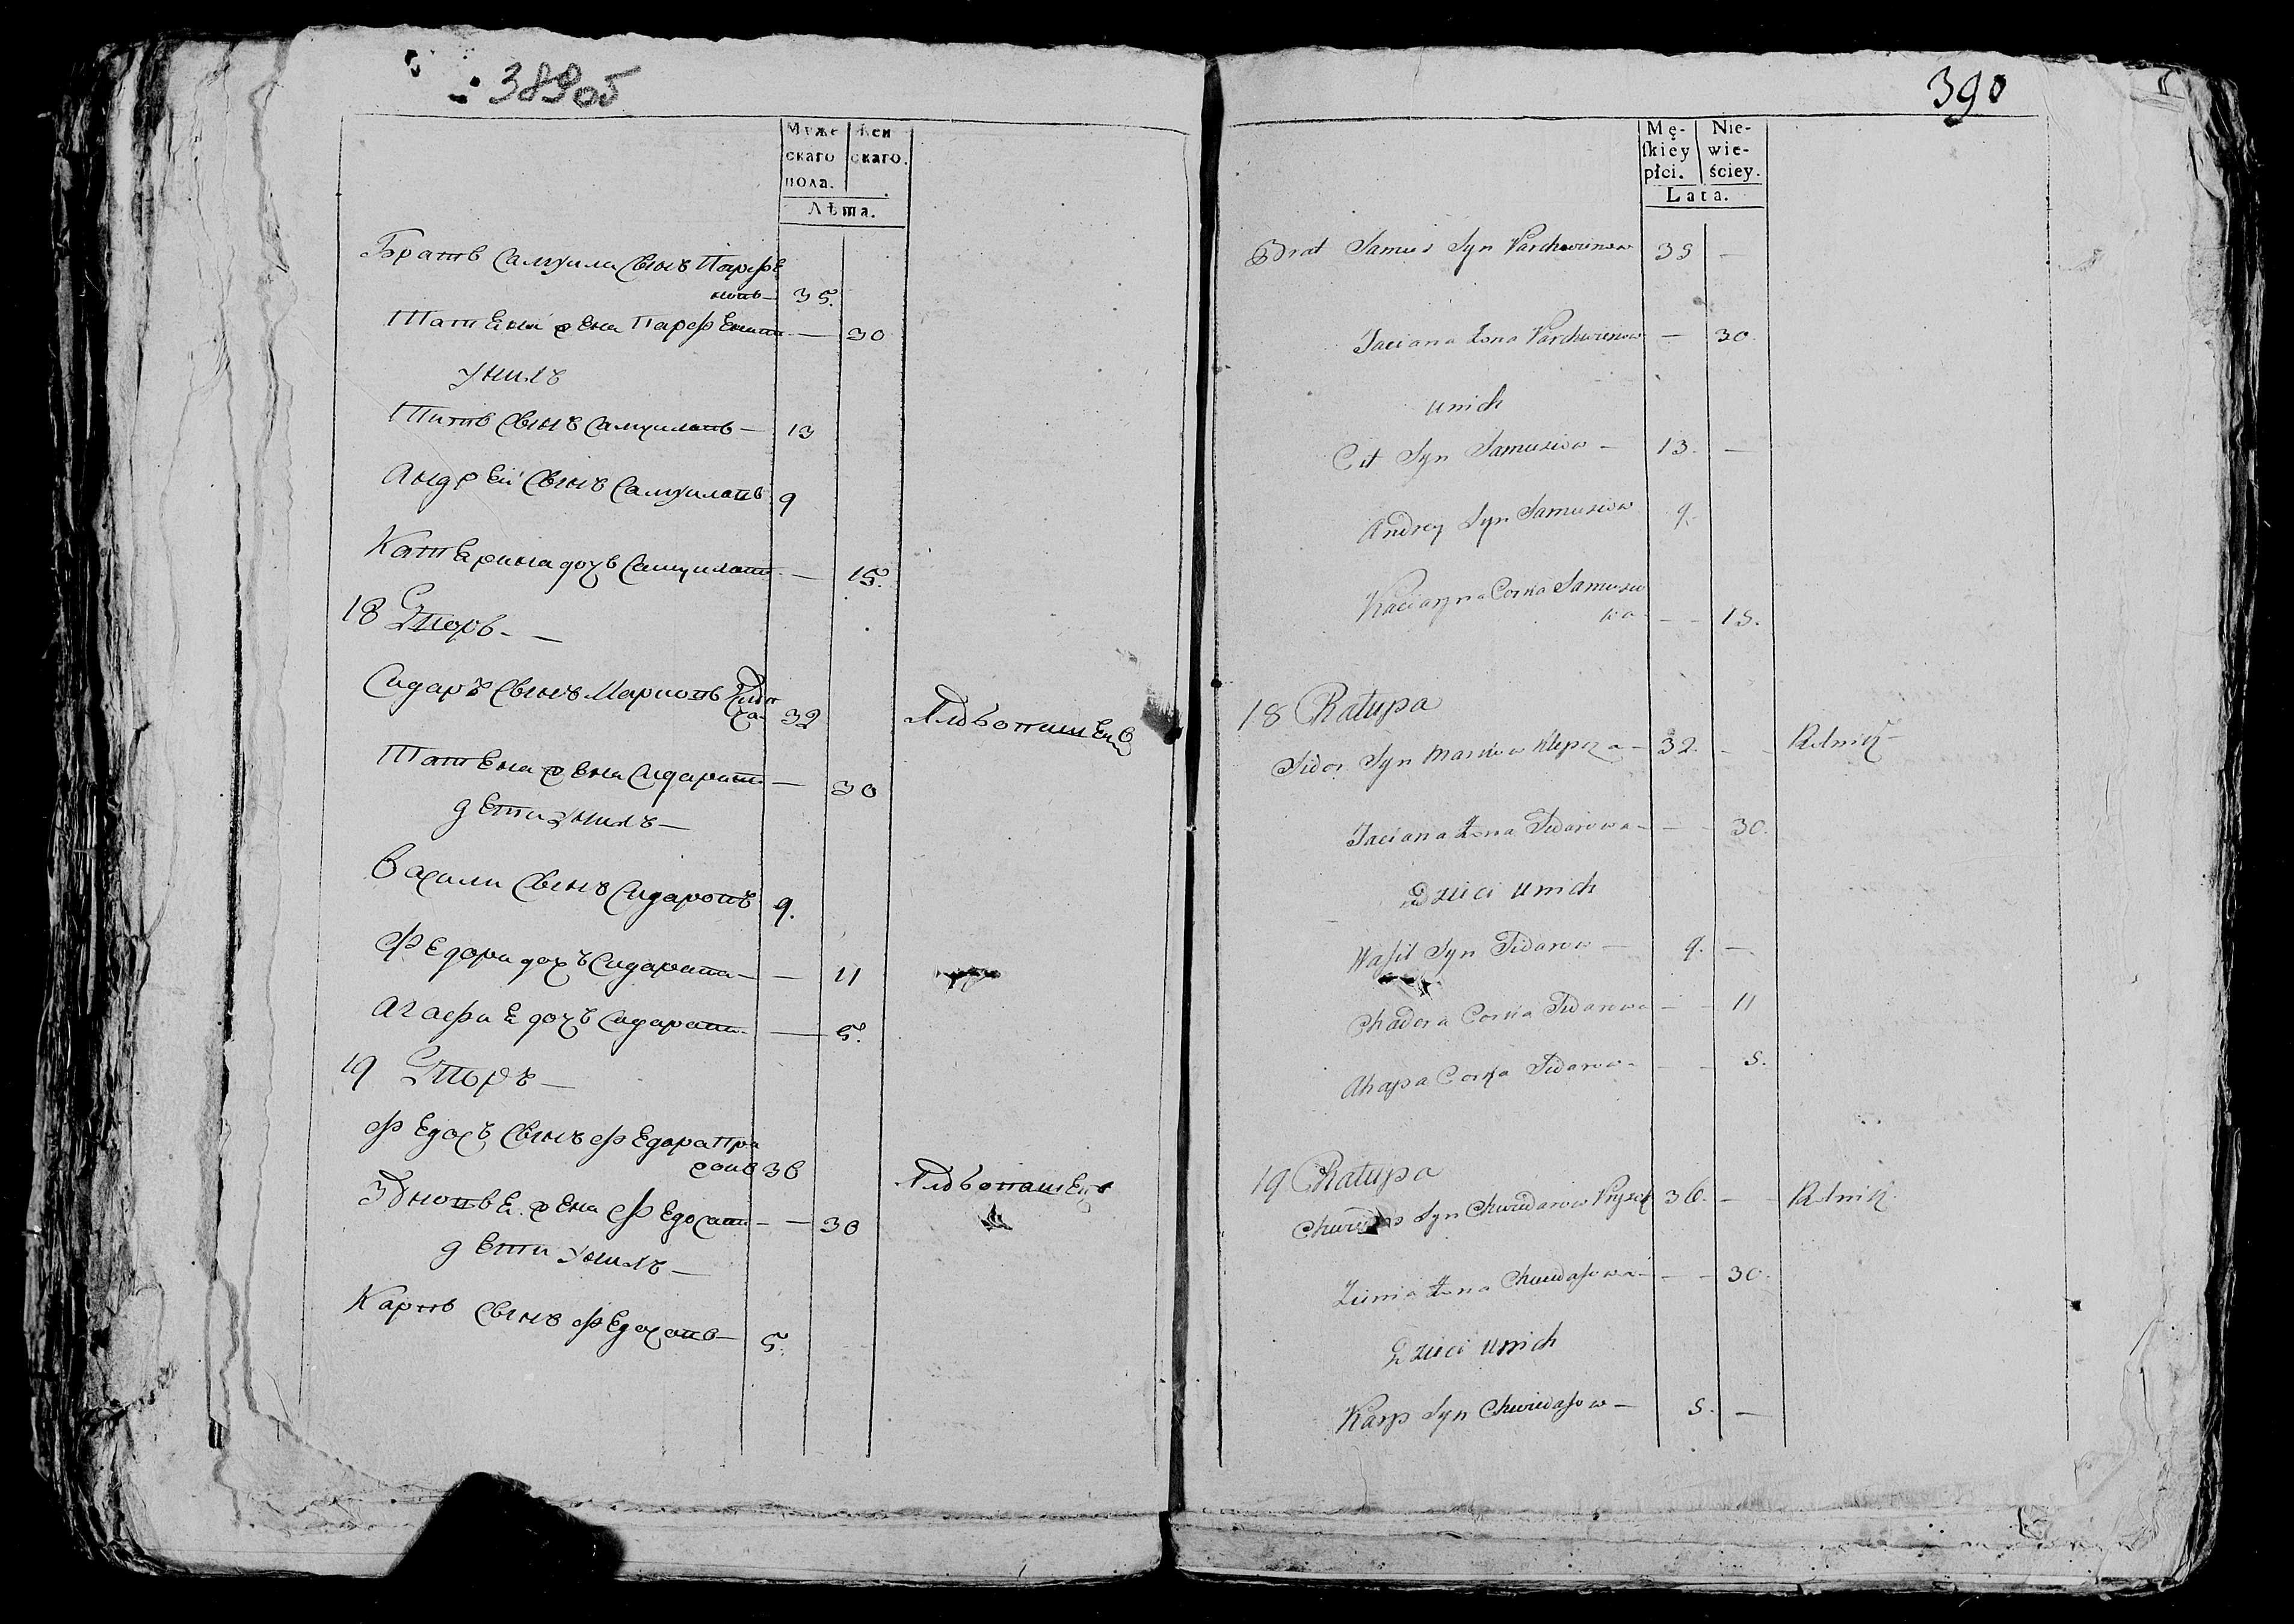 389об
Муже
скаго
пола.
Жен
скаго.
Лѣта.
Братъ Самуила Сынъ Парфе
новъ — 35.
Татьяна жена Парфенова — 30
у них
Титъ Сынъ Самуиловъ — 13
Андрей Сынъ Самуиловъ 9
Катерина дочь Самуилова — 15.
18 Дворъ —
Сидаръ Сынъ Марковъ 32
Татьяна жена Сидарова — 30
дети у них —
Васили Сынъ Сидаровъ 9.
Федора дочь Сидарова — — 11
Агафия дочь Сидарова — 5.
19 Дворъ —
Федос Сынъ Федора 36
жена Федосова — — 30
дети у них —
Карпъ Сынъ Федосовъ — 5.
390
Mę-
skiéy
płci.
Nie-
wie-
ściey.
Lata.
Brat Samuś Syn Parchwienow 35 —
Taciana Żona Parchwienow — 30.
u nich
Cit Syn Samusiow — 13. —
Andrey Syn Samusiow 9.
Kaciaryna Corka Samusio
wa — — 15.
18 Chatupa
Sidor Syn Markow Klepcza — 32. — Rolnik —
Taciana Żona Sidorowa — — 30.
Dzieci u nich
Wasil Syn Sidorow — 9. —
Chadora Corka Sidorowa — — 11
Ahapa Corka Sidorowa — — 5.
19 Chatupa
Syn Chwiedorow 36. — Rolnik.
Żona Chwiedasowa — — 30.
Dzieci u nich
Karp Syn Chwiedasow — 5. —